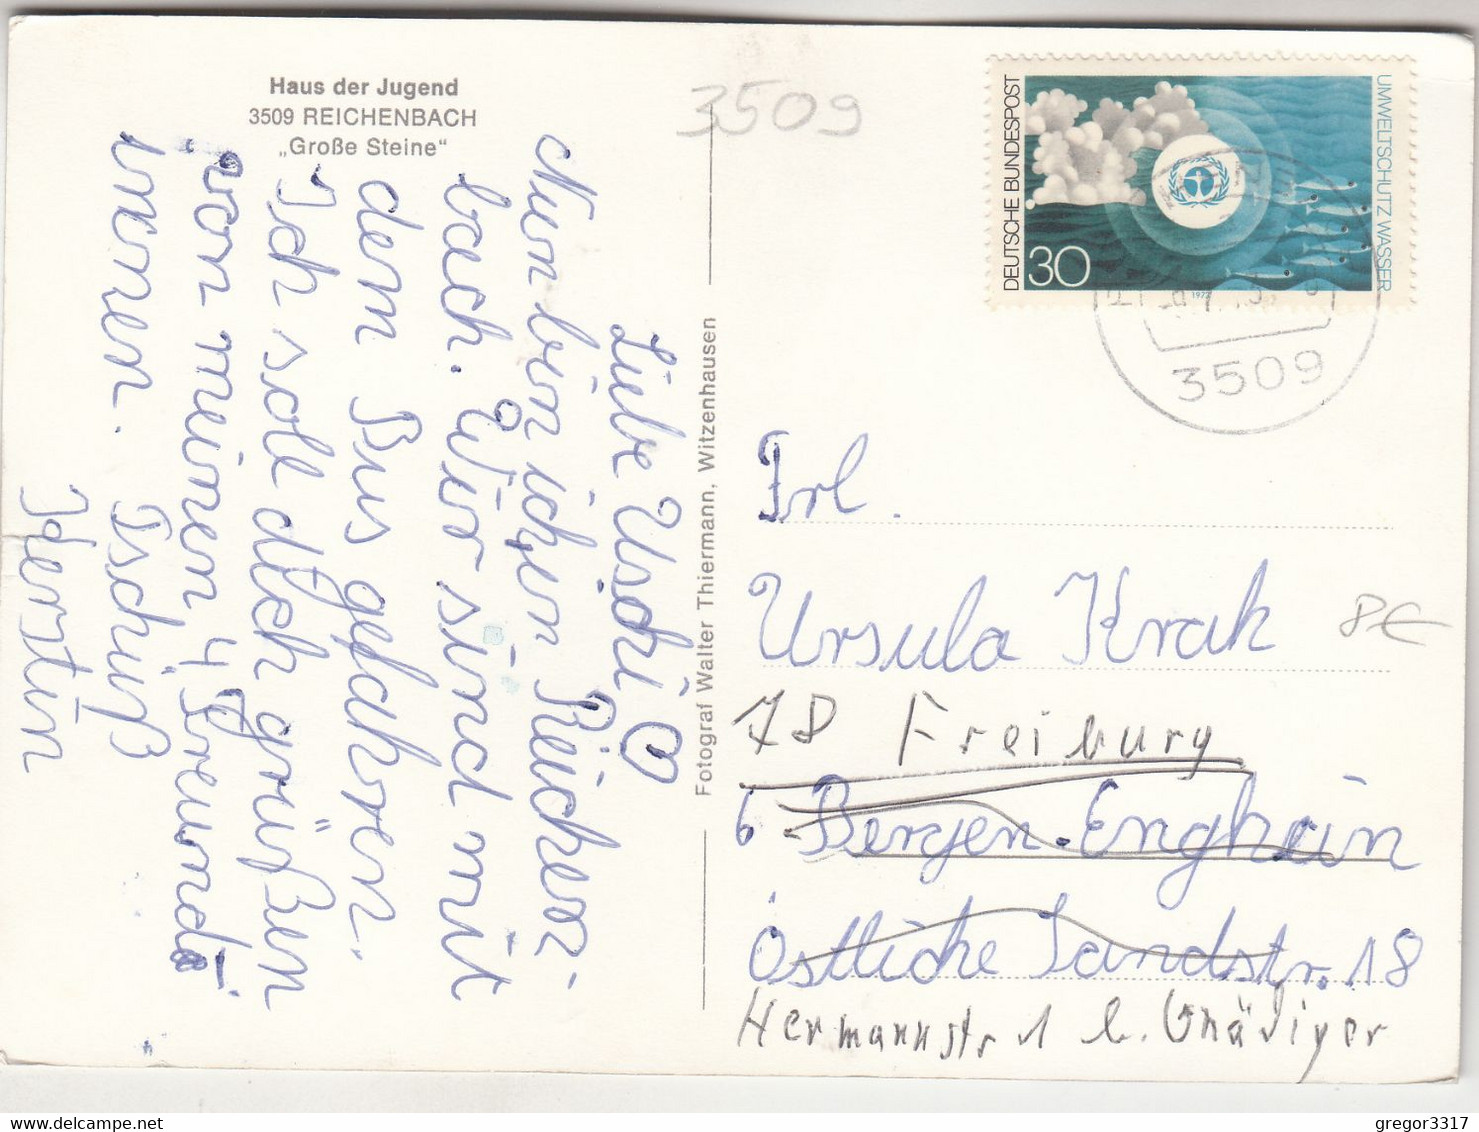 Haus der Jugend
3509 REICHENBACH
„Große Steine“
3509
Liebe Uschi
Nun bin ich in Reichen-
bach. Wir sind mit
dem Bus gefahren.
Ich soll dich grüßen
von meinen 4 Freundi-
innen.
Tschüß
Kerstin
Fotograf Walter Thiermann, Witzenhausen
DEUTSCHE BUNDESPOST
UMWELTSCHUTZ WASSER
30
1973
3509
Frl.
Ursula Krak
8€
78 Freiburg
6 Bergen-Enghein
Östliche Landstr. 18
Hermannstr 1 b. Gnädiger
gregor3317